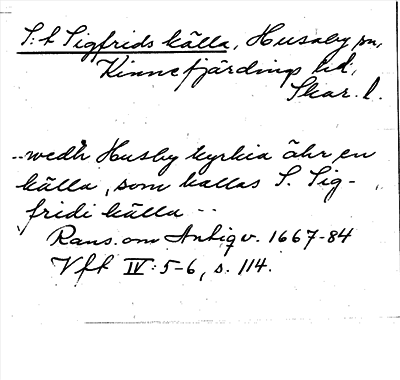 S:t Sigfrids källa, Husaby sn,
Kinnefjärdings hd,
Skar. l.
..wedh Husby kyrkia ähr en
källa, som kallas S. Sig-
fridi källa ..
Rans. om Antiqv. 1667-84
Vft IV: 5-6, s. 114.